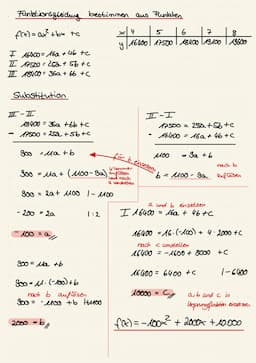 Funktionsgleichung bestimmen aus Punkten
f(x) = ax² + bx + c
x | 4 | 5 | 6 | 7 | 8
y | 16400 | 17500 | 18400 | 19100 | 19600
I 16400 = 16a + 4b + c
II 17500 = 25a + 5b + c
III 18400 = 36a + 6b + c
Substitution
III - II
18400 = 36a + 6b + c
- 17500 = 25a + 5b + c
900 = 11a + b
für b einsetzen
900 = 11a + (1100 - 9a)
900 = 2a + 1100 | - 1100
- 200 = 2a | : 2
- 100 = a
900 = 11a + b
900 = 11 · (-100) + b
nach b auflösen
900 = - 1100 + b | + 1100
2000 = b
II - I
17500 = 25a + 5b + c
- 16400 = 16a + 4b + c
1100 = 9a + b
nach b
auflösen
b = 1100 - 9a
a und b einsetzen
I 16400 = 16a + 4b + c
16400 = 16 · (-100) + 4 · 2000 + c
nach c umstellen
16400 = -1600 + 8000 + c
16400 = 6400 + c | - 6400
10000 = c
a, b und c in
f(x) = -100x² + 2000x + 10000